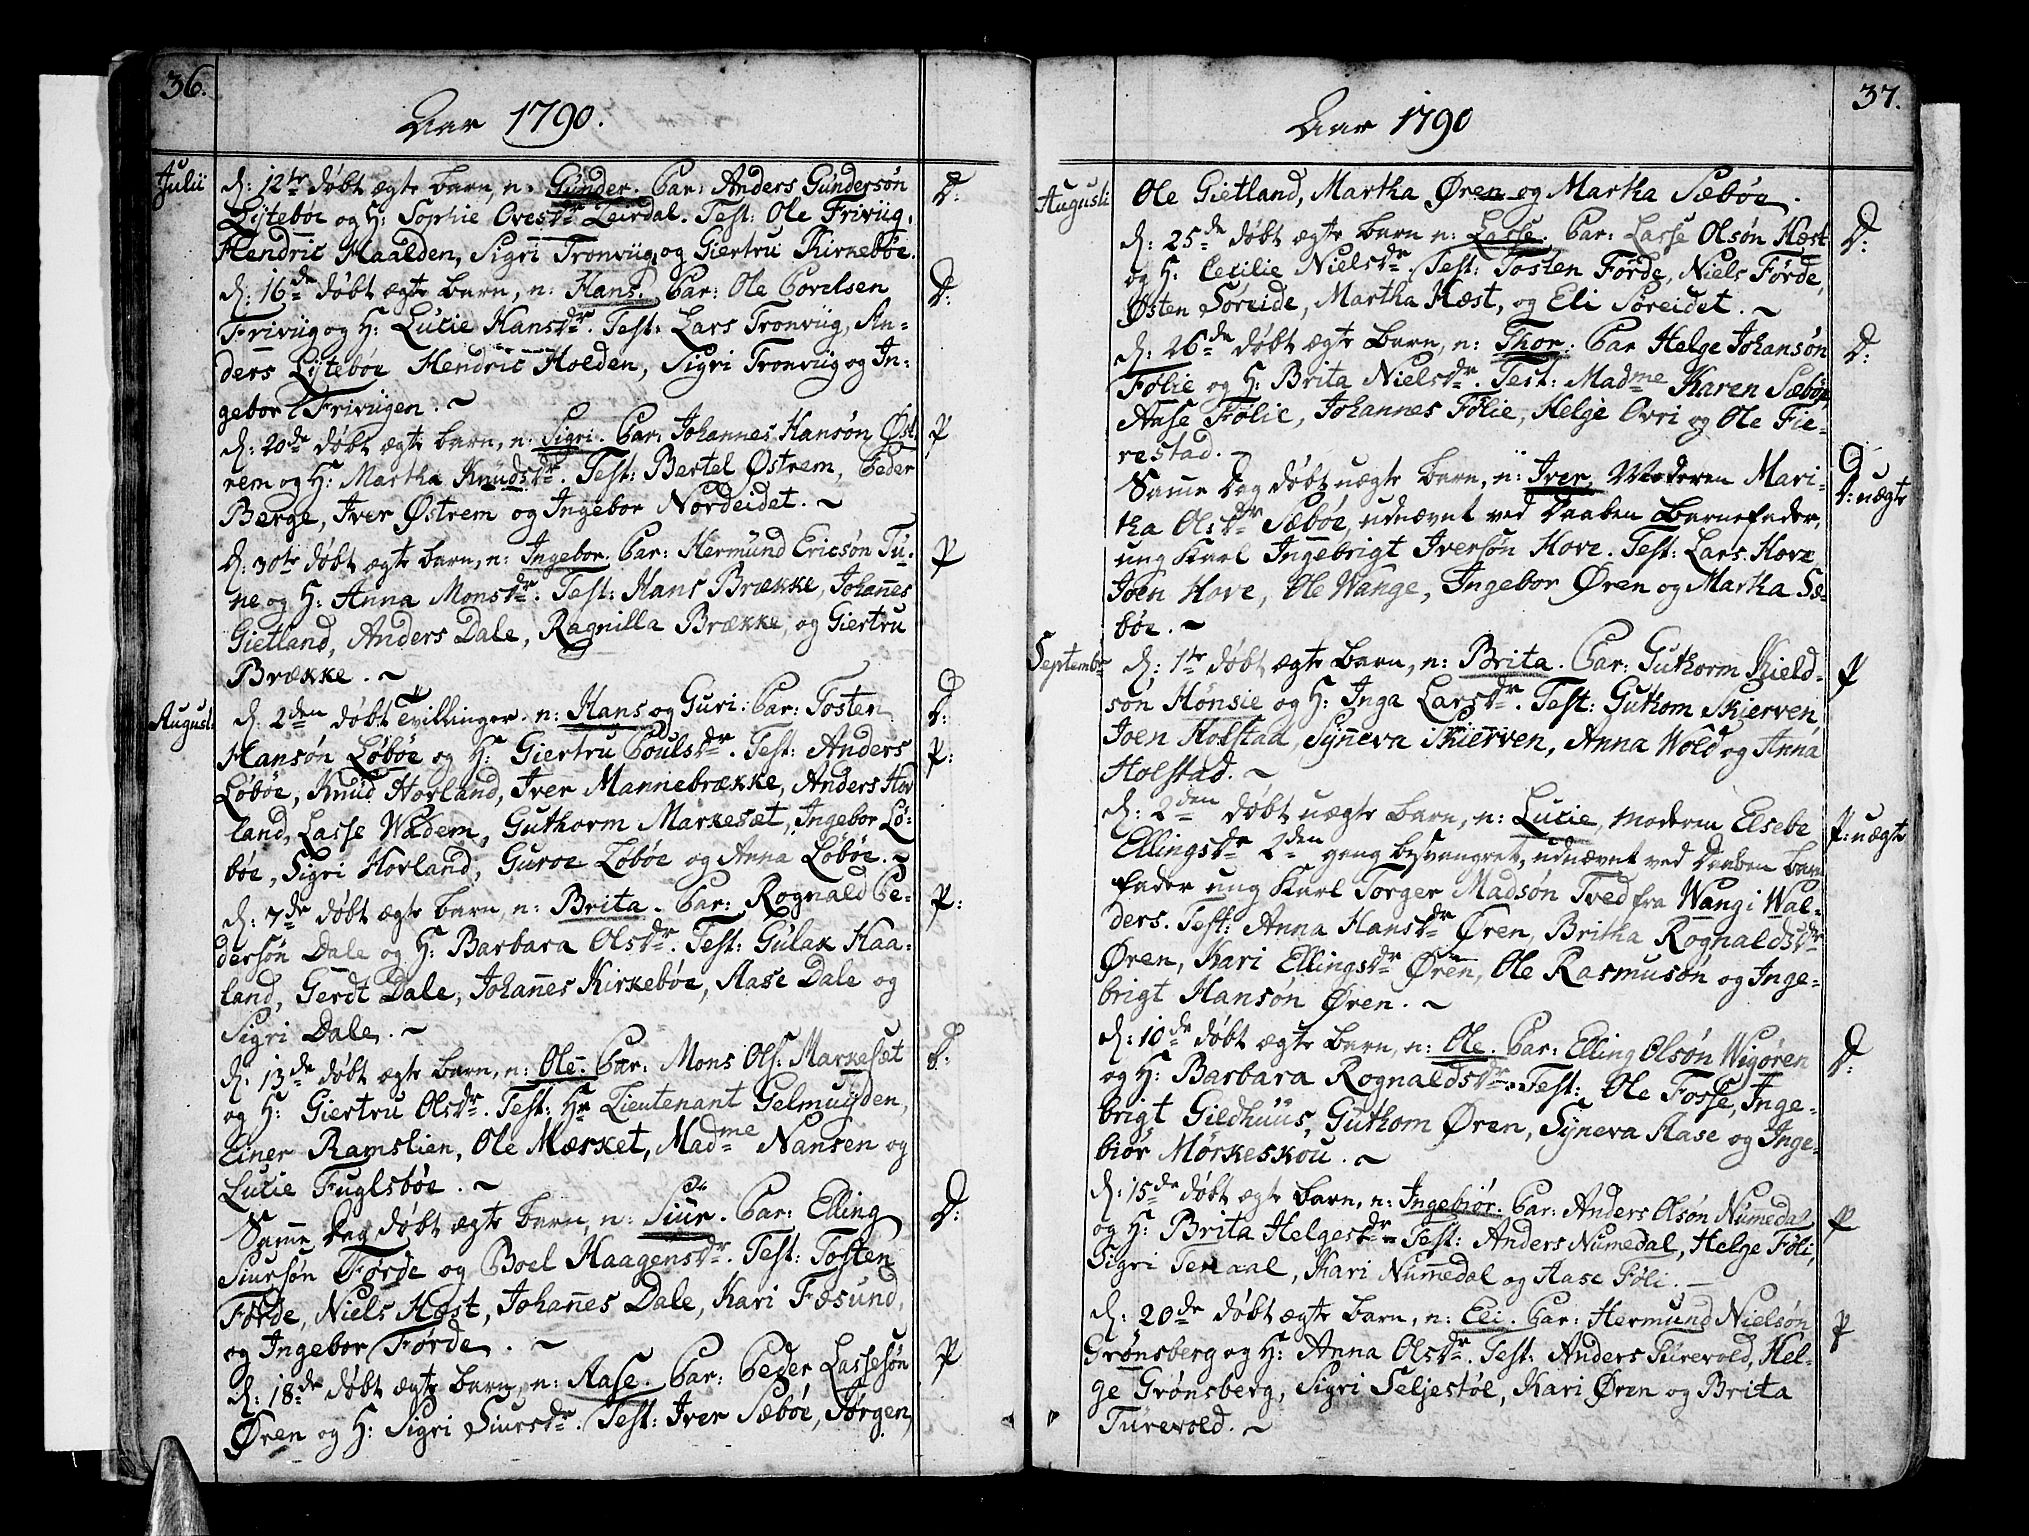 36.
Aar 1790.
Julii
d: 12te døbt ægte barn, n: Gunder. Par: Anders Gundersøn D:
Lytebøe og H: Sophie Ovesdr Leirdal. Test: Ole Friviig,
Hendric Haalden, Sigri Tronviig og Giertru Kirkebøe.
d: 16de døbt ægte barn, n: Hans. Par: Ole Povelsen D:
Friviig og H: Lucie Hansdr. Test: Lars Tronviig, An-
ders Lytebøe Hendric Holden, Sigri Tronviig og In-
gebor Friviigen. ~
d: 20de døbt ægte barn, n: Sigri. Par: Johannes Hansøn Øst P
rem og H: Martha Knudsdr. Test: Bertel Østrem, Peder
Berge, Iver Østrem og Ingebor Nordeidet. ~
d: 30te døbt ægte barn, n: Ingebor. Par: Hermund Ericsøn Tu- P
ne og H: Anna Monsdr. Test: Hans Brække, Johannes
Gietland, Anders Dale, Ragnilla Brække, og Giertru
Brække. ~
Augusti
d: 2den døbt Tvillinger n: Hans og Guri. Par: Tosten D:
Hansøn Løbøe og H: Giertru Poulsdr. Test: Anders P:
Løbøe, Knud Hovland, Iver Mannebrække, Anders Hov
land, Lasse Wadem, Guthorm Markesæt, Ingebor Lø-
bøe, Sigri Hovland, Guroe Løbøe og Anna Løbøe. ~
d: 7de døbt ægte barn, n: Brita. Par: Rognald Pe- P:
dersøn Dale og H: Barbara Olsdr. Test: Gulak Haa-
land, Gerdt Dale, Johannes Kirkebøe, Aase Dale og
Sigri Dale. ~
d: 13de døbt ægte barn, n: Ole. Par: Mons Ols: Markesæt D:
og H: Giertru Olsdr. Test: Hr Lieutenant Gelmuyden,
Einer Ramslien, Ole Mærket, Madme Nansen og
Lucie Fuglsbøe. ~
Samme Dag døbt ægte barn, n: Siur. Par: Elling D:
Siursøn Førde og Boel Haagensdr. Test: Tosten
Førde, Niels Hæst, Johannes Dale, Kari Fæsund,
og Ingebor Førde. ~
d: 18de døbt ægte barn, n: Aase. Par: Peder Lassesøn P
Øren og H: Sigri Siursdr. Test: Iver Sæbøe, Jørgen,
37.
Aar 1790
Augusti
Ole Gietland, Martha Øren og Martha Sæbøe.
d: 25de døbt ægte barn n: Lasse. Par: Lasse Olsøn Hæst D:
og H: Cecilie Nielsdr. Test: Tosten Førde, Niels Førde,
Østen Søreide, Martha Hæst, og Eli Søreidet. ~
d: 26de døbt ægte barn, n: Thor. Par Helge Johansøn D:
Følie og H: Brita Nielsdr. Test: Madme Karen Sæbøe,
Aase Følie, Johannes Følie, Helge Ovri og Ole Fie-
restad. ~
Samme Dag døbt uægte barn, n: Iver, Moderen Mari- D: uægte
tha Ol:dr Sæbøe, udnævnt ved Daaben Barnefader,
ung Karl Ingebrigt Iversøn Hove. Test: Lars Hove
Joen Hove, Ole Wange, Ingebor Øren og Martha Sæ-
bøe. ~
Septembr
d: 1te døbt ægte barn, n: Brita. Par: Guthorm Kield- P
søn Hønsie og H: Inga Larsdr. Test: Guthom Skierven,
Joen Holstad, Synneva Skierven, Anna Wold og Anna
Holstad. ~
d: 2den døbt uægte barn, n: Lucie, Moderen Elsebe P: uægte
Ellingsdr 2den gang besvangret, udnævnt ved Daaben barn
fader ung Karl Torger Madsøn Tved fra Wang i Wal-
ders. Test: Anna Hansdr Øren, Britha Rognaldsdr
Øren, Kari Ellingsdr Øren, Ole Rasmusøn og Inge-
brigt Hansøn Øren. ~
d: 10de døbt ægte barn, n: Ole. Par: Elling Olsøn Wigøren D:
og H: Barbara Rognaldsdr. Test: Ole Fosse, Inge-
brigt Gildhuus, Guthom Øren, Syneva Aase og Inge-
biør Mørkeskou. ~
d: 15de døbt ægte barn, n: Ingebiør. Par: Anders Olsøn Nummedal P
og H: Brita Helgesdr. Test: Anders Numedal, Helge Føli,
Sigri Tenaal, Kari Nummedal og Aase Føli. ~
d: 20de døbt ægte barn, n: Eli. Par: Hermund Nielsøn P
Grønsberg og H: Anna Olsdr. Test: Anders Turevold, Hel-
ge Grønsberg, Sigri Seljestøl, Kari Øren og Brita
Turevold. ~